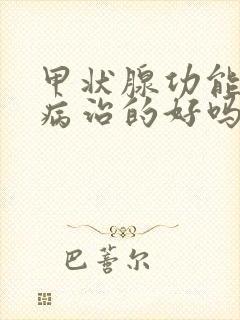 甲状腺功能
病治的好吗
巴萫尔